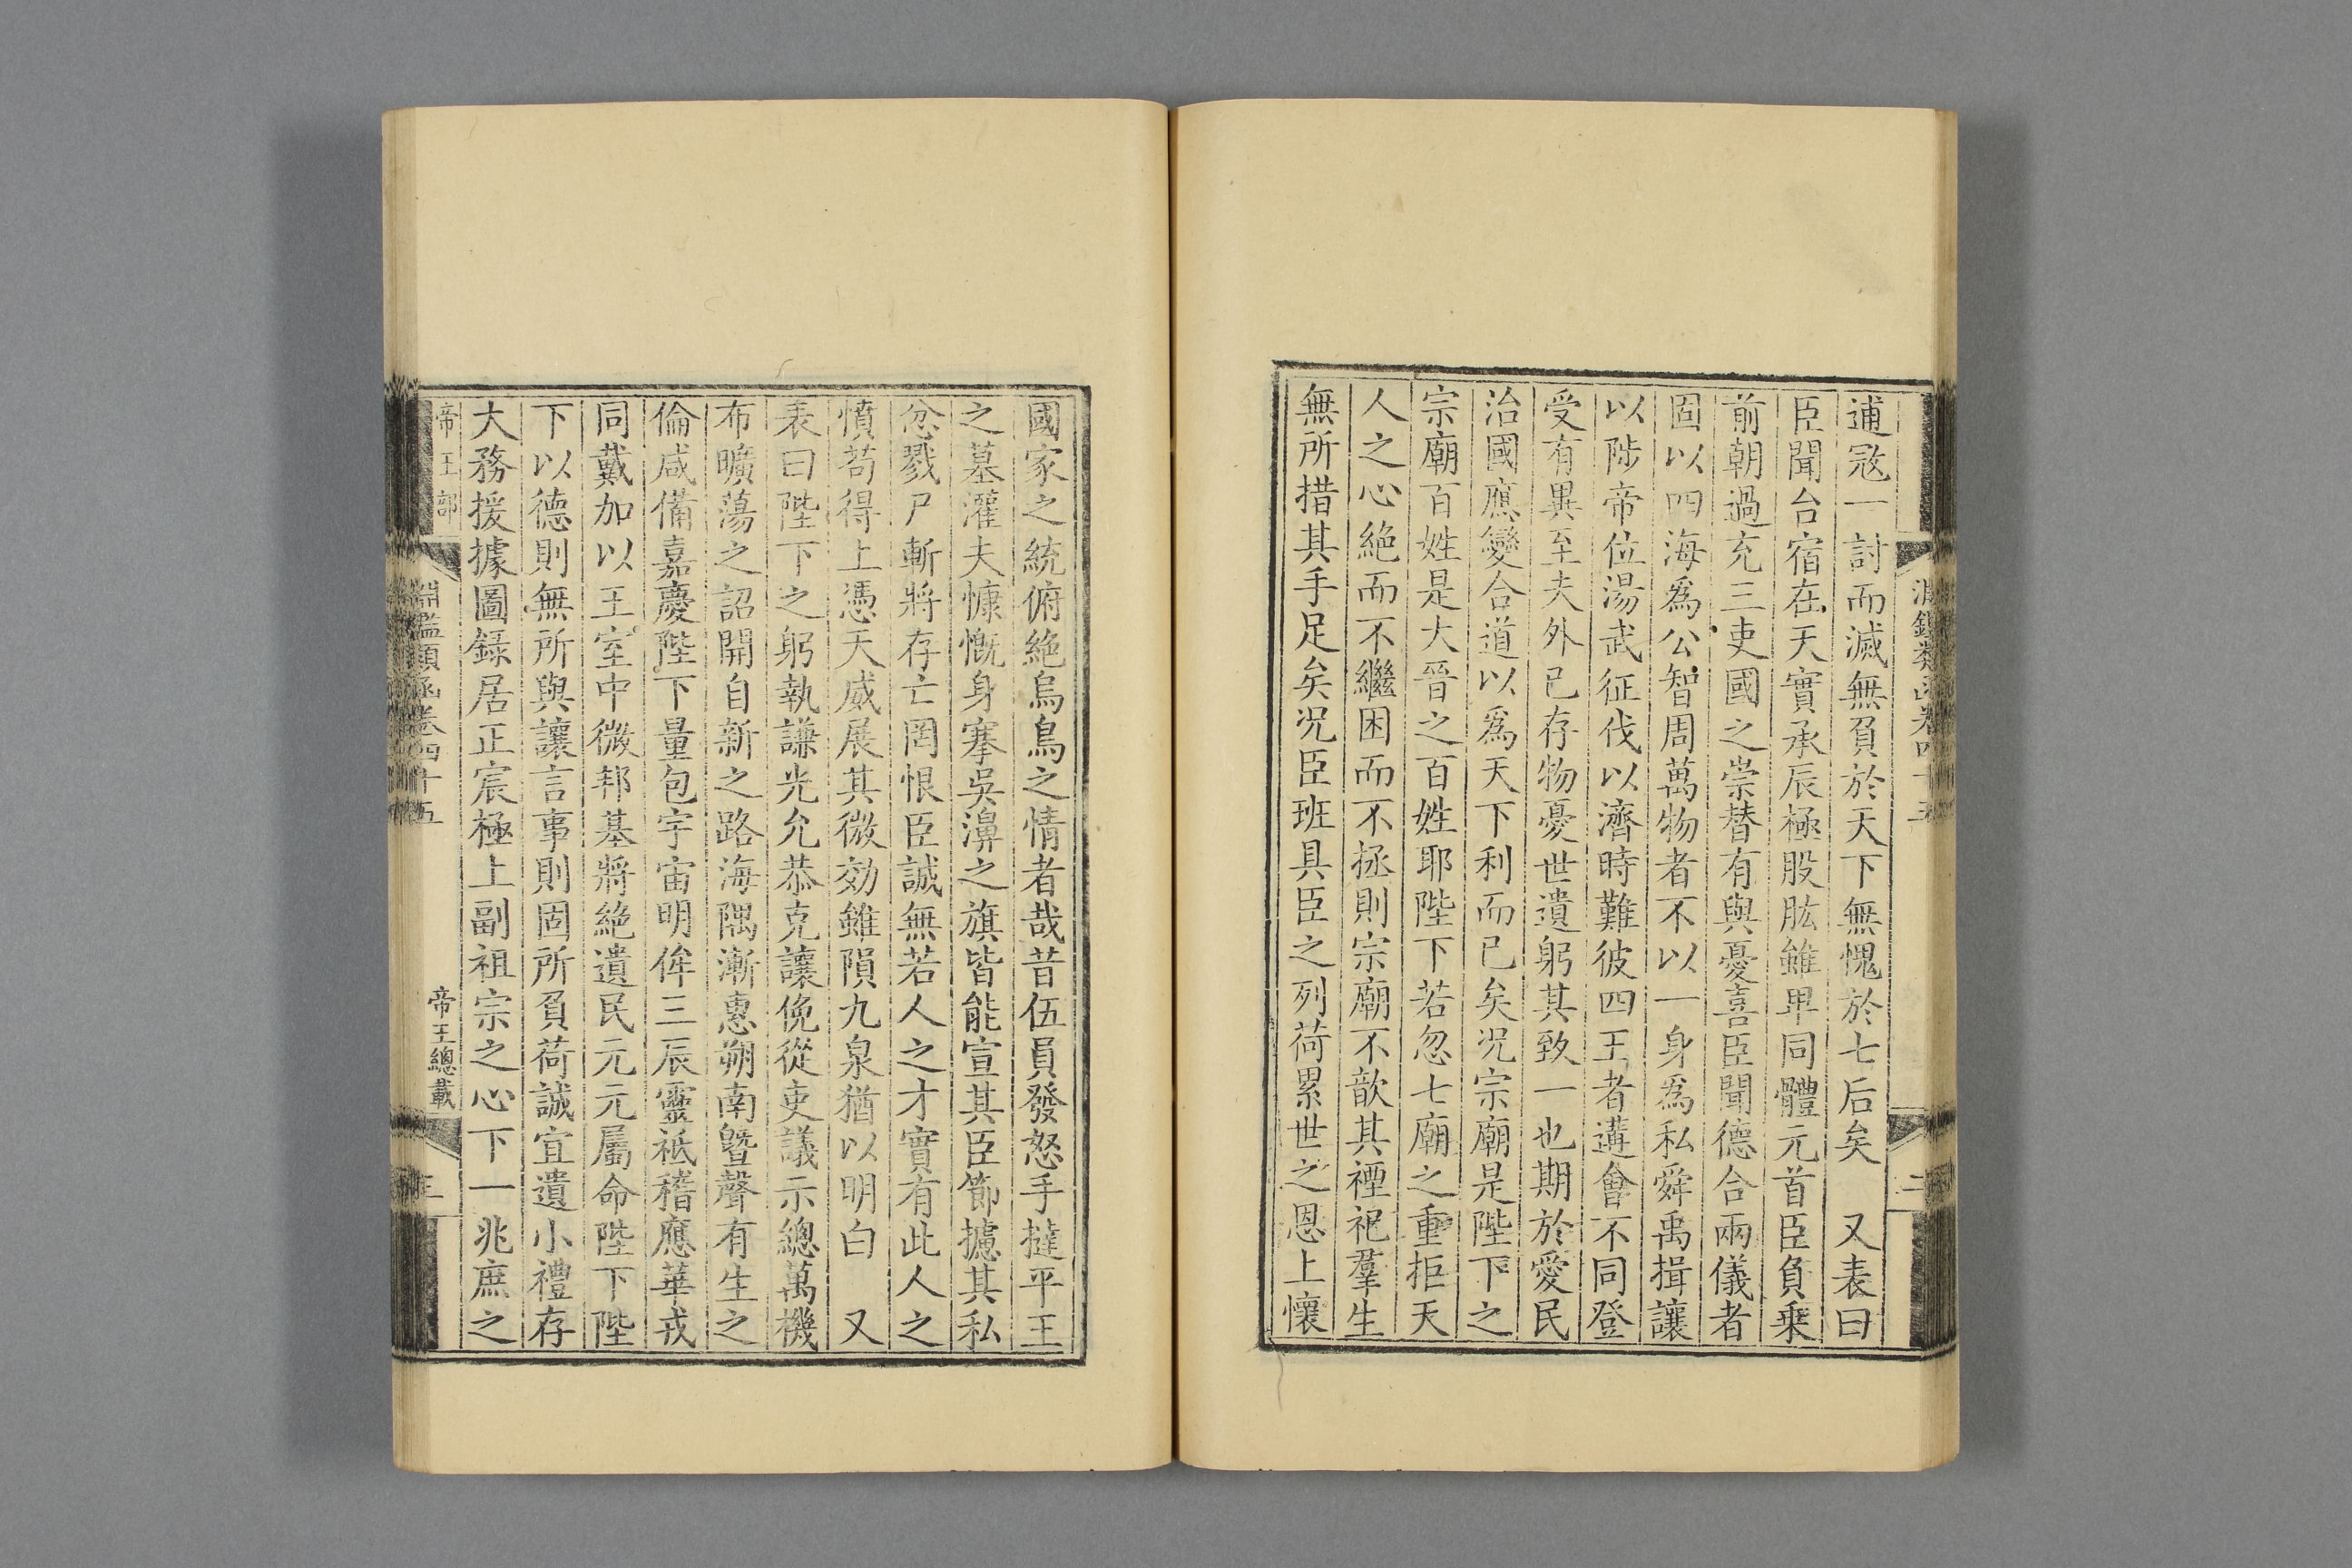 淵鑑類函卷四十五
二
逋寇一討而滅無負於天下無愧於七后矣　又表曰
臣聞台宿在天實承辰極股肱雖卑同體元首臣負乘
前朝過充三吏國之崇替有與憂喜臣聞德合兩儀者
固以四海爲公智周萬物者不以一身爲私舜禹揖讓
以陟帝位湯武征伐以濟時難彼四王者遘會不同登
受有異至夫外已存物憂世遺躬其致一也期於愛民
治國應變合道以爲天下利而已矣况宗廟是陛下之
宗廟百姓是大晉之百姓耶陛下若忽七廟之重拒天
人之心絶而不繼困而不拯則宗廟不歆其禋祀羣生
無所措其手足矣况臣班具臣之列荷累世之恩上懷
國家之統俯絶烏鳥之情者哉昔伍員發怒手撻平王
之墓灌夫慷慨身搴吳濞之旗皆能宣其臣節攄其私
忿戮尸斬將存亡罔恨臣誠無若人之才實有此人之
憤苟得上憑天威展其微効雖隕九泉猶以明白　又
表曰陛下之躬執謙光允恭克讓俛從吏議示總萬機
布曠蕩之詔開自新之路海隅漸惪朔南曁聲有生之
倫咸備嘉慶陛下量包宇宙明侔三辰靈祇稽應華戎
同戴加以王室中微邦基將絶遺民元元屬命陛下陛
下以德則無所與讓言事則固所負荷誠宜遺小禮存
大務援據圖録居正宸極上副祖宗之心下一兆庶之
帝王部
帝王總載
淵鑑類函卷四十五